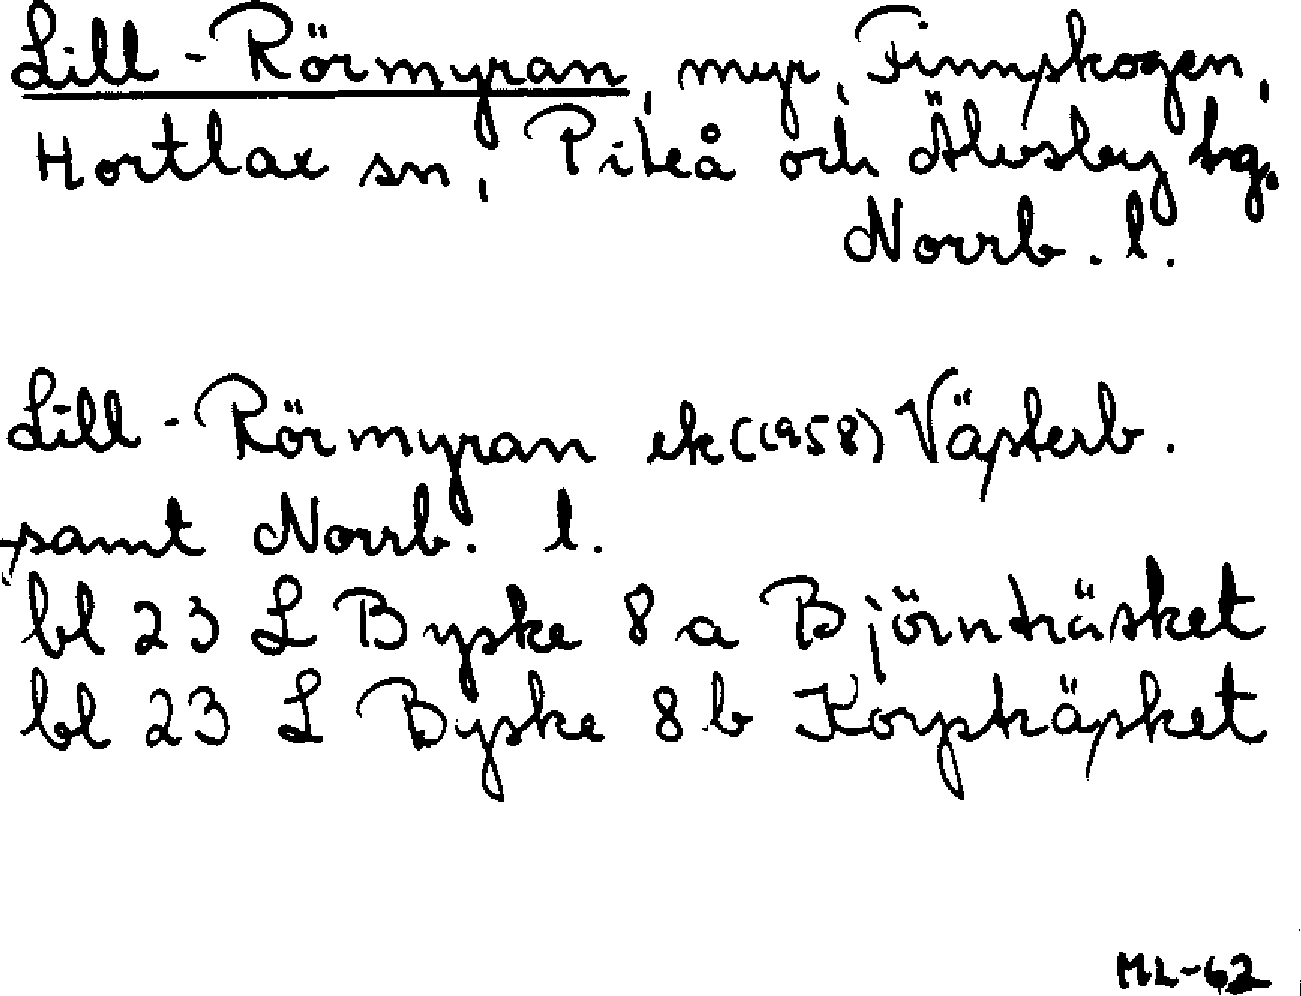 Lill-Rörmyran, myr, Finnskogen,
Hortlax sn, Piteå och Älvsby tg.
Norrb. l.
Lill-Rörmyran ek (1958) Västerb.
samt Norrb. l.
bl 23 L Byske 8 a Björnträsket
bl 23 L Byske 8 b Korsträsket
ML-62